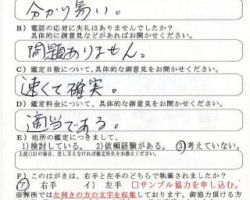 分かり易い。
B）電話の応対に失礼はありませんでしたか？
具体的に御意見などがあればお聞かせください。
問題ありません。
C）鑑定日数について、具体的な御意見をお聞かせください。
速くて確実。
D）鑑定料金について、具体的な御意見をお聞かせください。
適当である。
E）他所の鑑定につきまして、
1）検討している。 2）依頼経験がある。 ③考えていない。
F）このはがきは、右手と左手のどちらで執筆されましたか？
ア）右手 イ）左手 □サンプル協力を申し込む。
※弊所では左利きの方の文字を収集しております。御協力頂ける方